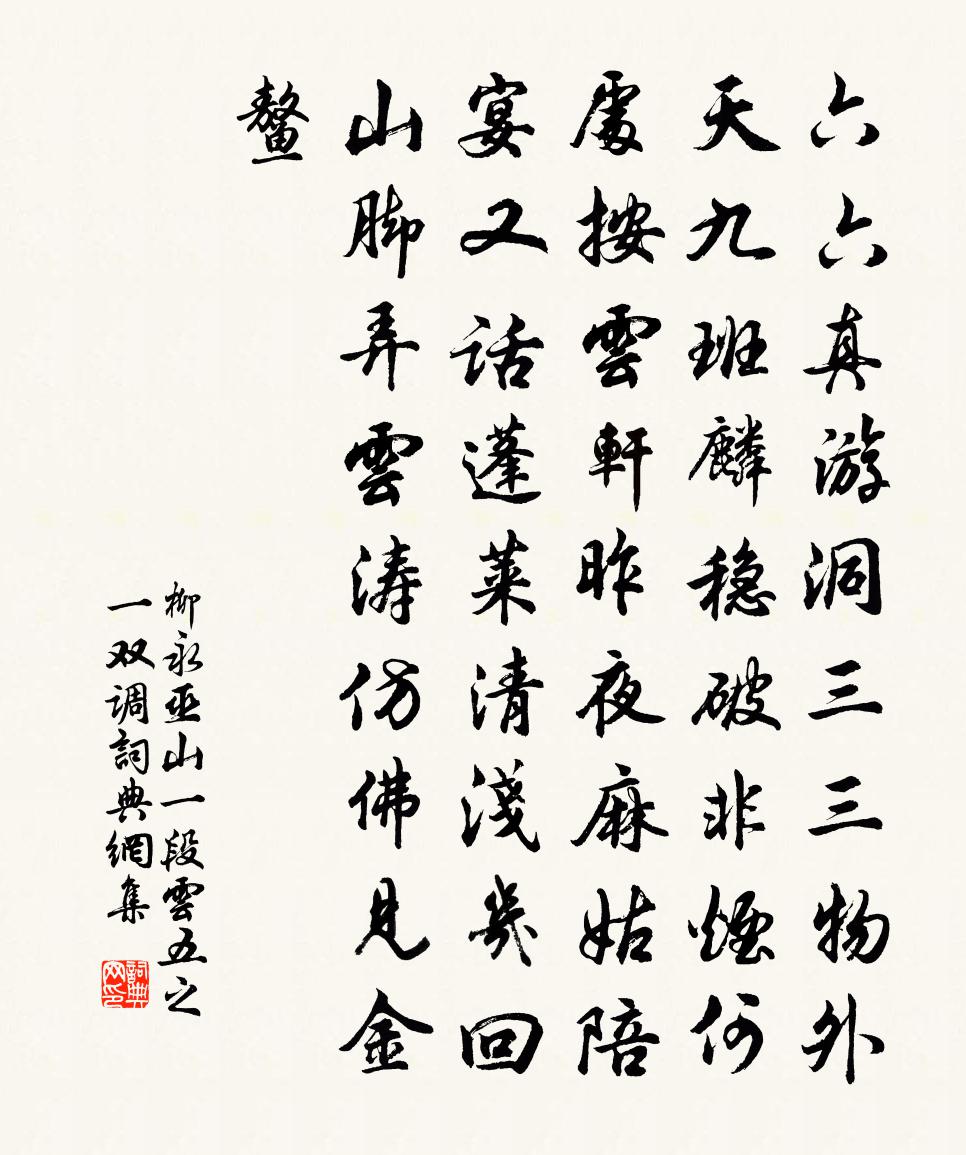 六六真游洞三三物外
天九班麟穏破非煙何
處按雲軒昨夜麻姑陪
宴又話蓬萊清淺幾回
山脚弄雲涛仿佛見金
鰲
柳永巫山一段雲五之
一双调詞典網集
詞典网印